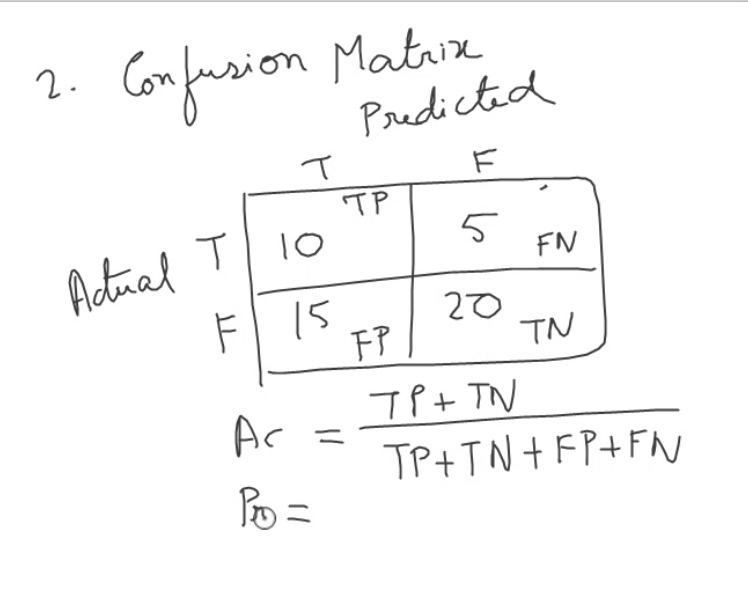 2. Confusion Matrix
Predicted
T F
TP
T 10 5 FN
Actual
F 15 FP 20 TN
Ac = TP + TN
TP + TN + FP + FN
Pr =